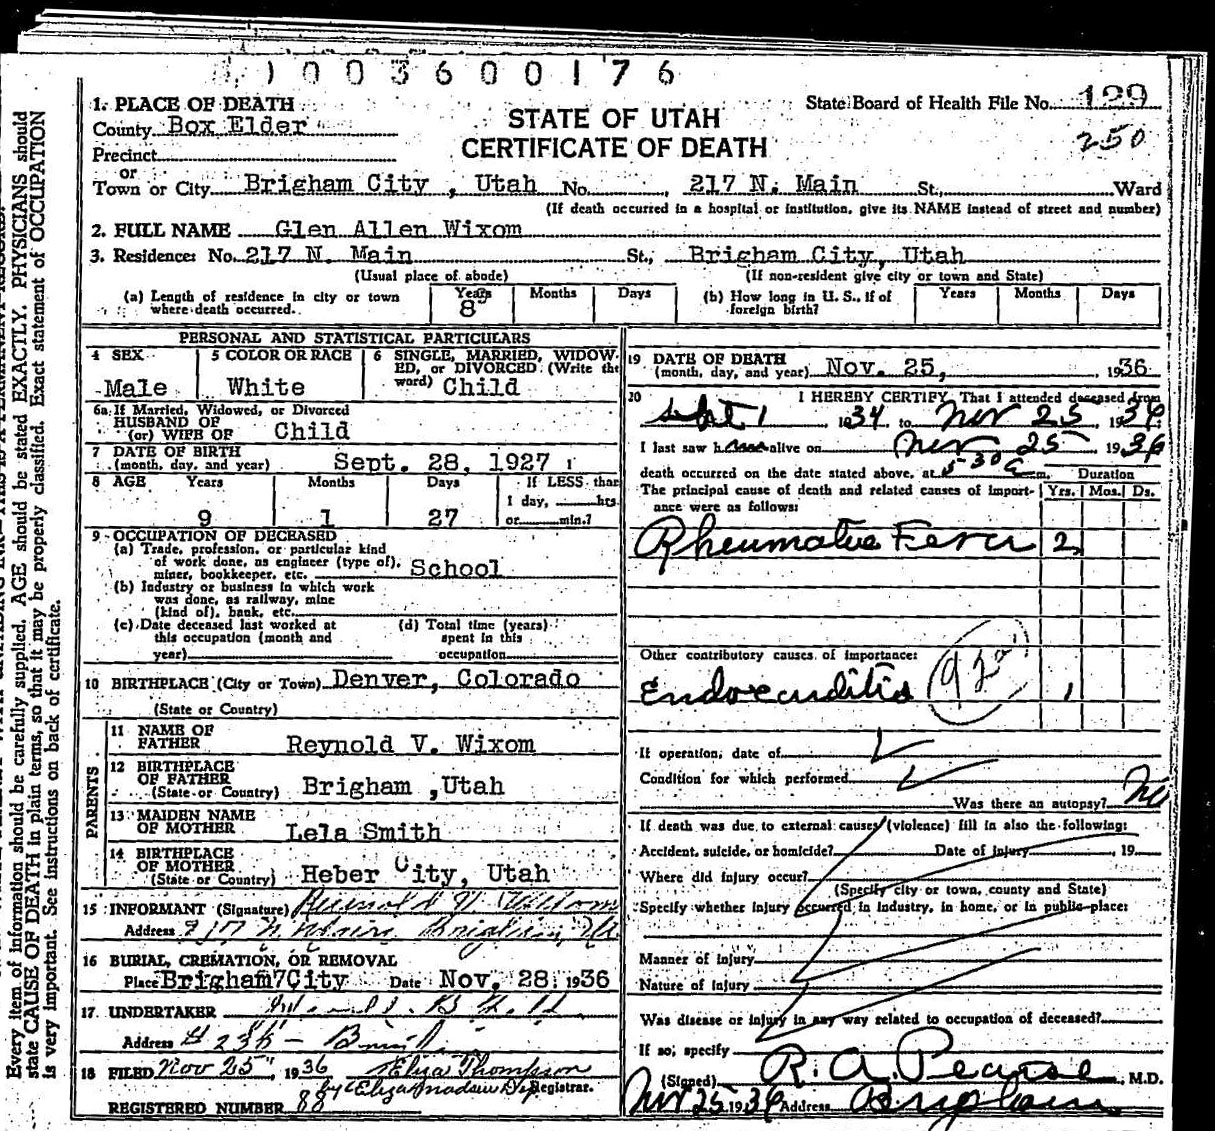 1003600176
1. PLACE OF DEATH
State Board of Health File No. 129
County Box Elder
STATE OF UTAH
250
Precinct
CERTIFICATE OF DEATH
or
Town or City Brigham City, Utah No. 217 N. Main St. Ward
(If death occurred in a hospital or institution, give its NAME instead of street and number)
2. FULL NAME Glen Allen Wixom
3. Residence: No. 217 N. Main St., Brigham City, Utah
(Usual place of abode) (If non-resident give city or town and State)
(a) Length of residence in city or town where death occurred. Years 8 Months Days (b) How long in U. S., if of foreign birth? Years Months Days
PERSONAL AND STATISTICAL PARTICULARS
4 SEX Male
5 COLOR OR RACE White
6 SINGLE, MARRIED, WIDOWED, or DIVORCED (Write the word) Child
6a If Married, Widowed, or Divorced
HUSBAND OF
(or) WIFE OF Child
7 DATE OF BIRTH
(month, day, and year) Sept. 28, 1927
8 AGE Years Months Days If LESS than
1 day, hrs.
9 1 27 or min.?
9 OCCUPATION OF DECEASED
(a) Trade, profession, or particular kind
of work done, as engineer (type of),
miner, bookkeeper, etc. School
(b) Industry or business in which work
was done, as railway, mine
(kind of), bank, etc.
(c) Date deceased last worked at
this occupation (month and
year)
(d) Total time (years)
spent in this
occupation
10 BIRTHPLACE (City or Town) Denver, Colorado
(State or Country)
PARENTS
11 NAME OF
FATHER Reynold V. Wixom
12 BIRTHPLACE
OF FATHER
(State or Country) Brigham ,Utah
13 MAIDEN NAME
OF MOTHER Lela Smith
14 BIRTHPLACE
OF MOTHER
(State or Country) Heber City, Utah
15 INFORMANT (Signature) Reynold V. Wixom
Address 217 N. Main Brigham, Ut
16 BURIAL, CREMATION, OR REMOVAL
Place Brigham7City Date Nov. 28, 1936
17 UNDERTAKER
Address
18 FILED Nov 25, 1936 Eliza Thompson
Registrar.
REGISTERED NUMBER 88
19 DATE OF DEATH
(month, day, and year) Nov. 25, 1936
20 I HEREBY CERTIFY, That I attended deceased from
Sept 1 1934 to Nov 25 1936
I last saw h alive on Nov 25 1936
death occurred on the date stated above, at 5 30 a m. Duration
The principal cause of death and related causes of importance were as follows: Yrs. Mos. Ds.
Rheumatic Fever 2
Other contributory causes of importance:
Endocarditis 1
If operation, date of
Condition for which performed
Was there an autopsy? No
If death was due to external causes (violence) fill in also the following:
Accident, suicide, or homicide? Date of injury , 19
Where did injury occur?
(Specify city or town, county and State)
Specify whether injury occurred in industry, in home, or in public place:
Manner of injury
Nature of injury
Was disease or injury in any way related to occupation of deceased?
If so, specify
(Signed) R. A. Pearse, M.D.
Nov 25 1936 Address Brigham
Every item of information should be carefully supplied. AGE should be stated EXACTLY. PHYSICIANS should
state CAUSE OF DEATH in plain terms, so that it may be properly classified. Exact statement of OCCUPATION
is very important. See instructions on back of certificate.